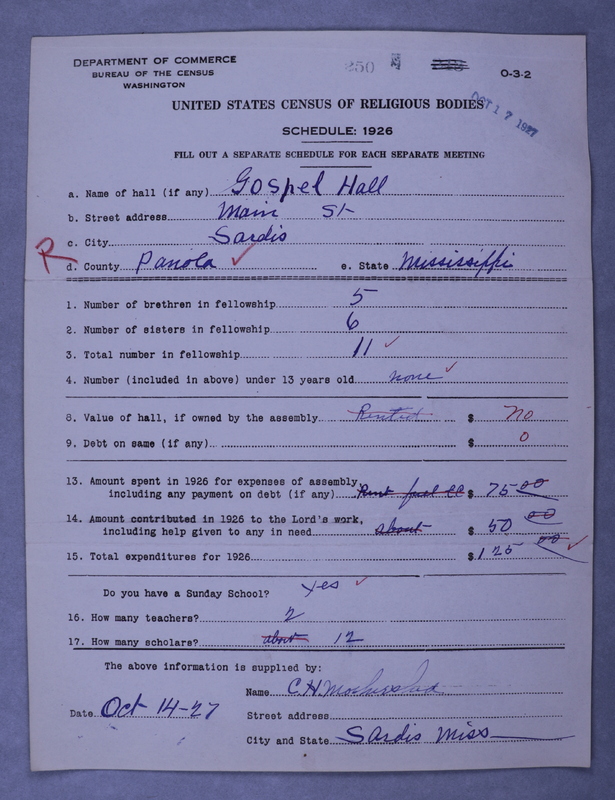 DEPARTMENT OF COMMERCE
BUREAU OF THE CENSUS
WASHINGTON
250
O-3-2
OCT 17 1927
UNITED STATES CENSUS OF RELIGIOUS BODIES
SCHEDULE: 1926
FILL OUT A SEPARATE SCHEDULE FOR EACH SEPARATE MEETING
a. Name of hall (if any) Gospel Hall
b. Street address Main St
c. City Sardis
R
d. County Panola ✓ e. State Mississippi
1. Number of brethren in fellowship 5
2. Number of sisters in fellowship 6
3. Total number in fellowship 11 ✓
4. Number (included in above) under 13 years old none ✓
8. Value of hall, if owned by the assembly Rented $ no
9. Debt on same (if any) $ 0
13. Amount spent in 1926 for expenses of assembly,
including any payment on debt (if any) Rent fuel $ 75 00
14. Amount contributed in 1926 to the Lord's work,
including help given to any in need about $ 50 00
15. Total expenditures for 1926 $ 125 00 ✓
Do you have a Sunday School? yes ✓
16. How many teachers? 2
17. How many scholars? about 12
The above information is supplied by:
Name C.H.
Date Oct 14-27
Street address
City and State Sardis Miss